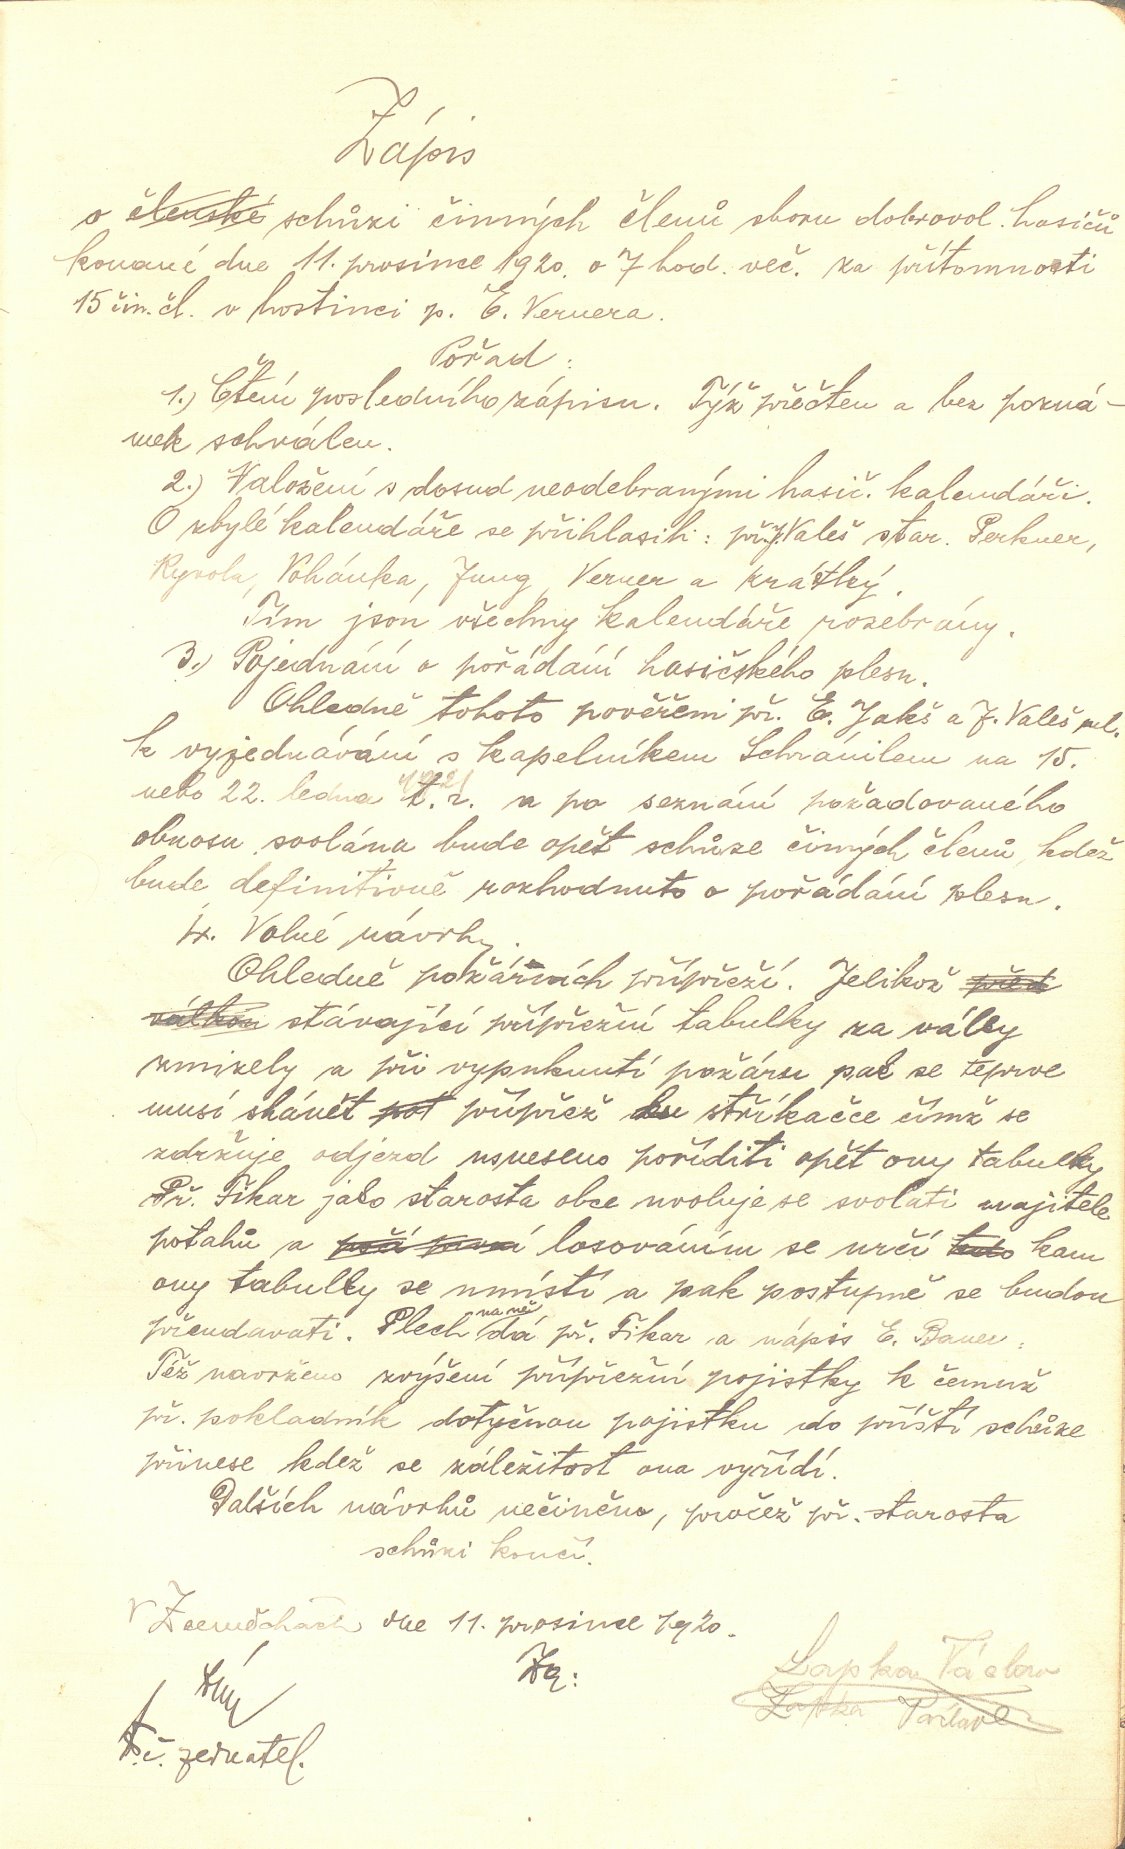 Zápis
o členské schůzi činných členů sboru dobrovol. hasičů
konané dne 11. prosince 1920. o 7 hod. več. za přítomnosti
15 čin. čl. v hostinci p. E. Vernera.
Pořad:
1.) Čtení posledního zápisu. Týž přečten a bez pozná-
mek schválen.
2.) Naložení s dosud neodebranými hasič. kalendáři.
O zbylé kalendáře se přihlasili: př. J. Valeš star. Perkner,
Ryvola, Vohánka, Jung, Verner a Krátký.
Tím json všechny kalendáře rozebrány.
3.) Pojednání o pořádání hasičského plesu.
Ohledně tohoto pověřeni př. E. Jakš a J. Valeš ml.
k vyjednávání s kapelníkem Schránilem na 15.
nebo 22. ledna 1921 t. r. a po seznání požadovaného
obnosu svolána bude opět schůze činých členů, kdež
bude definitivně rozhodnuto o pořádání plesu.
4. Volné návrhy.
Ohledně požárních přípřeží. Jelikož před
válkou stávající přípřežní tabulky za války
zmizely a při vypuknutí požáru pak se teprve
musí shánět pot přípřež ku stříkačce čímž se
zdržuje odjezd usneseno poříditi opět ony tabulky
Př. Fikar jako starosta obce uvoluje se svolati majitele
potahů a losováním se určí kdo kam
ony tabulky se umístí a pak postupně se budou
předavati. Plech na ně dá př. Fikar a nápis E. Bauer.
Též navrženo zvýšení přípřežní pojistky k čemuž
př. pokladník dotyčnou pojistku do příští schůze
přinese kdež se záležitost ona vyřídí.
Dalších návrhů nečiněno, pročež př. starosta
schůzi končí.
V dne 11. prosince 1920.
Lapka Václav
Lapka
t. č. jednatel.